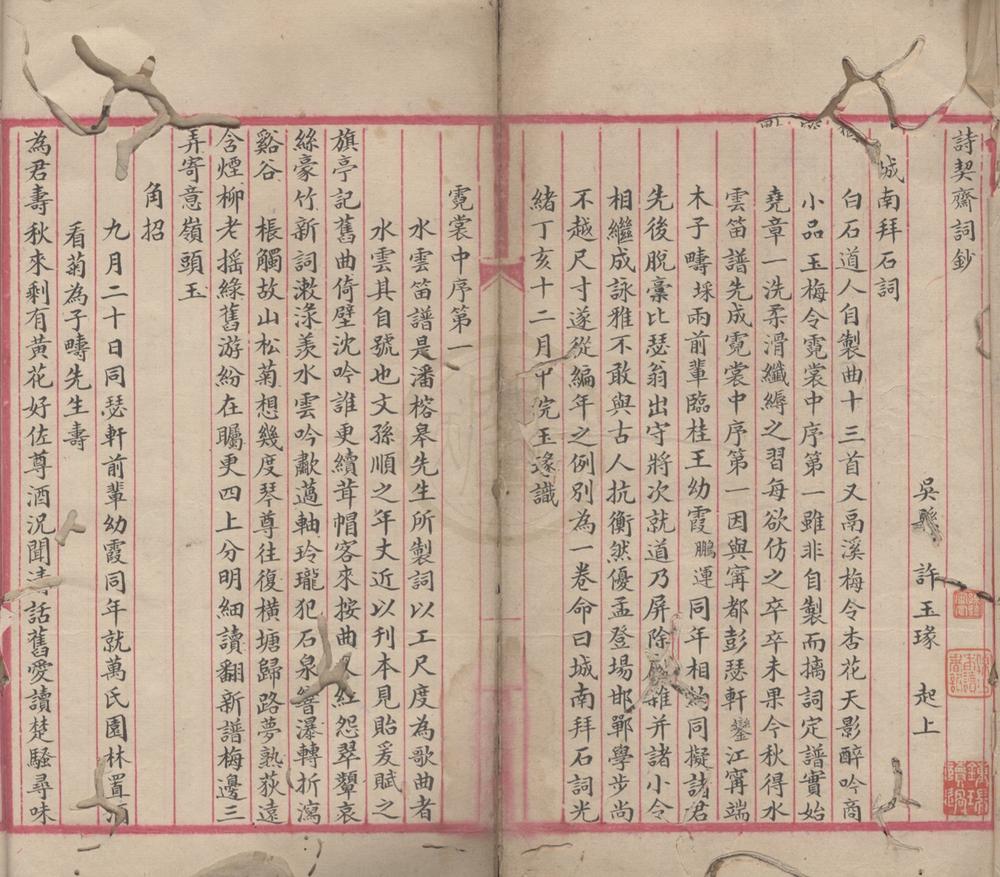 詩契齋詞鈔
吳縣 許玉瑑 起上
城南拜石詞
白石道人自製曲十三首又鬲溪梅令杏花天影醉吟商
小品玉梅令霓裳中序第一雖非自製而摛詞定譜實始
堯章一洗柔滑纖縟之習每欲仿之卒卒未果今秋得水
雲笛譜先成霓裳中序第一因與甯都彭瑟軒鑾江甯端
木子疇埰兩前輩臨桂王幼霞鵬運同年相約同擬諸君
先後脫稾比瑟翁出守將次就道乃屏除雜并諸小令
相繼成詠雅不敢與古人抗衡然優孟登場邯鄲學步尚
不越尺寸遂從編年之例別為一卷命曰城南拜石詞光
緒丁亥十二月中浣玉瑑識
霓裳中序第一
水雲笛譜是潘榕皋先生所製詞以工尺度為歌曲者
水雲其自號也文孫順之年丈近以刊本見貽爰賦之
旗亭記舊曲倚壁沈吟誰更續茸帽客來按曲紅怨翠顰哀
絲豪竹新詞漱淥羨水雲吟歗薖軸玲瓏犯石泉響瀑轉折瀉
谿谷 棖觸故山松菊想幾度琴尊往復橫塘歸路夢熟荻遠
含煙柳老搖綠舊游紛在矚更四上分明細讀翻新譜梅邊三
弄寄意嶺頭玉
角招
九月二十日同瑟軒前輩幼霞同年就萬氏園林置酒
看菊為子疇先生壽
為君壽秋來剩有黃花好佐尊酒況聞清話舊愛讀楚騷尋味